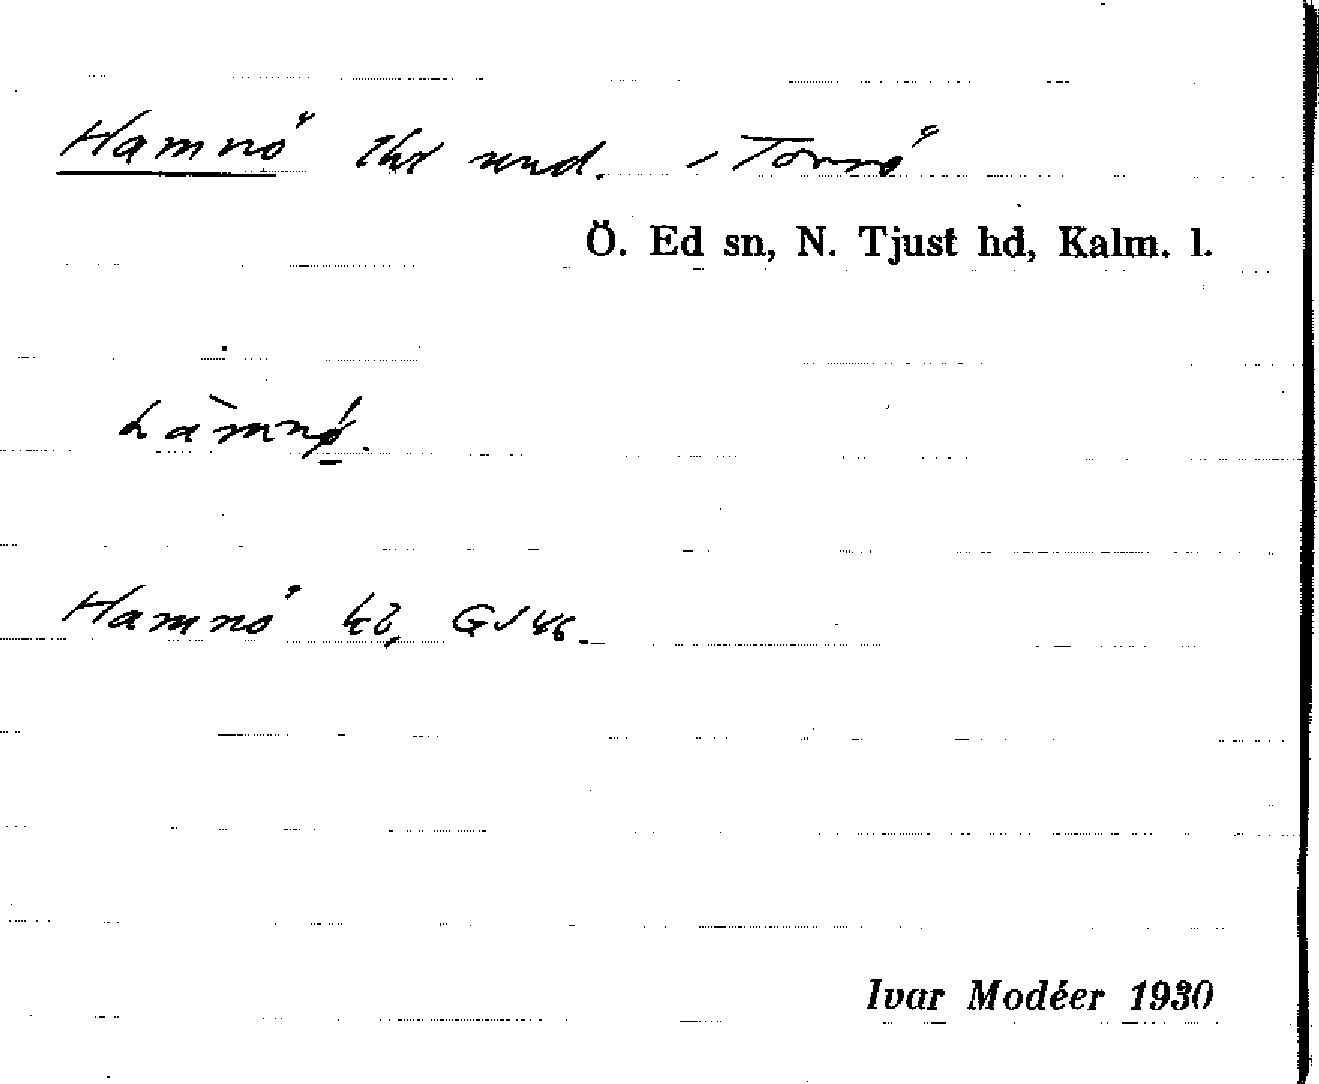 Hamnö thr und. Tornö
Ö. Ed sn, N. Tjust hd, Kalm. l.
hàmnø̱.
Hamnö
Ivar Modéer 1930